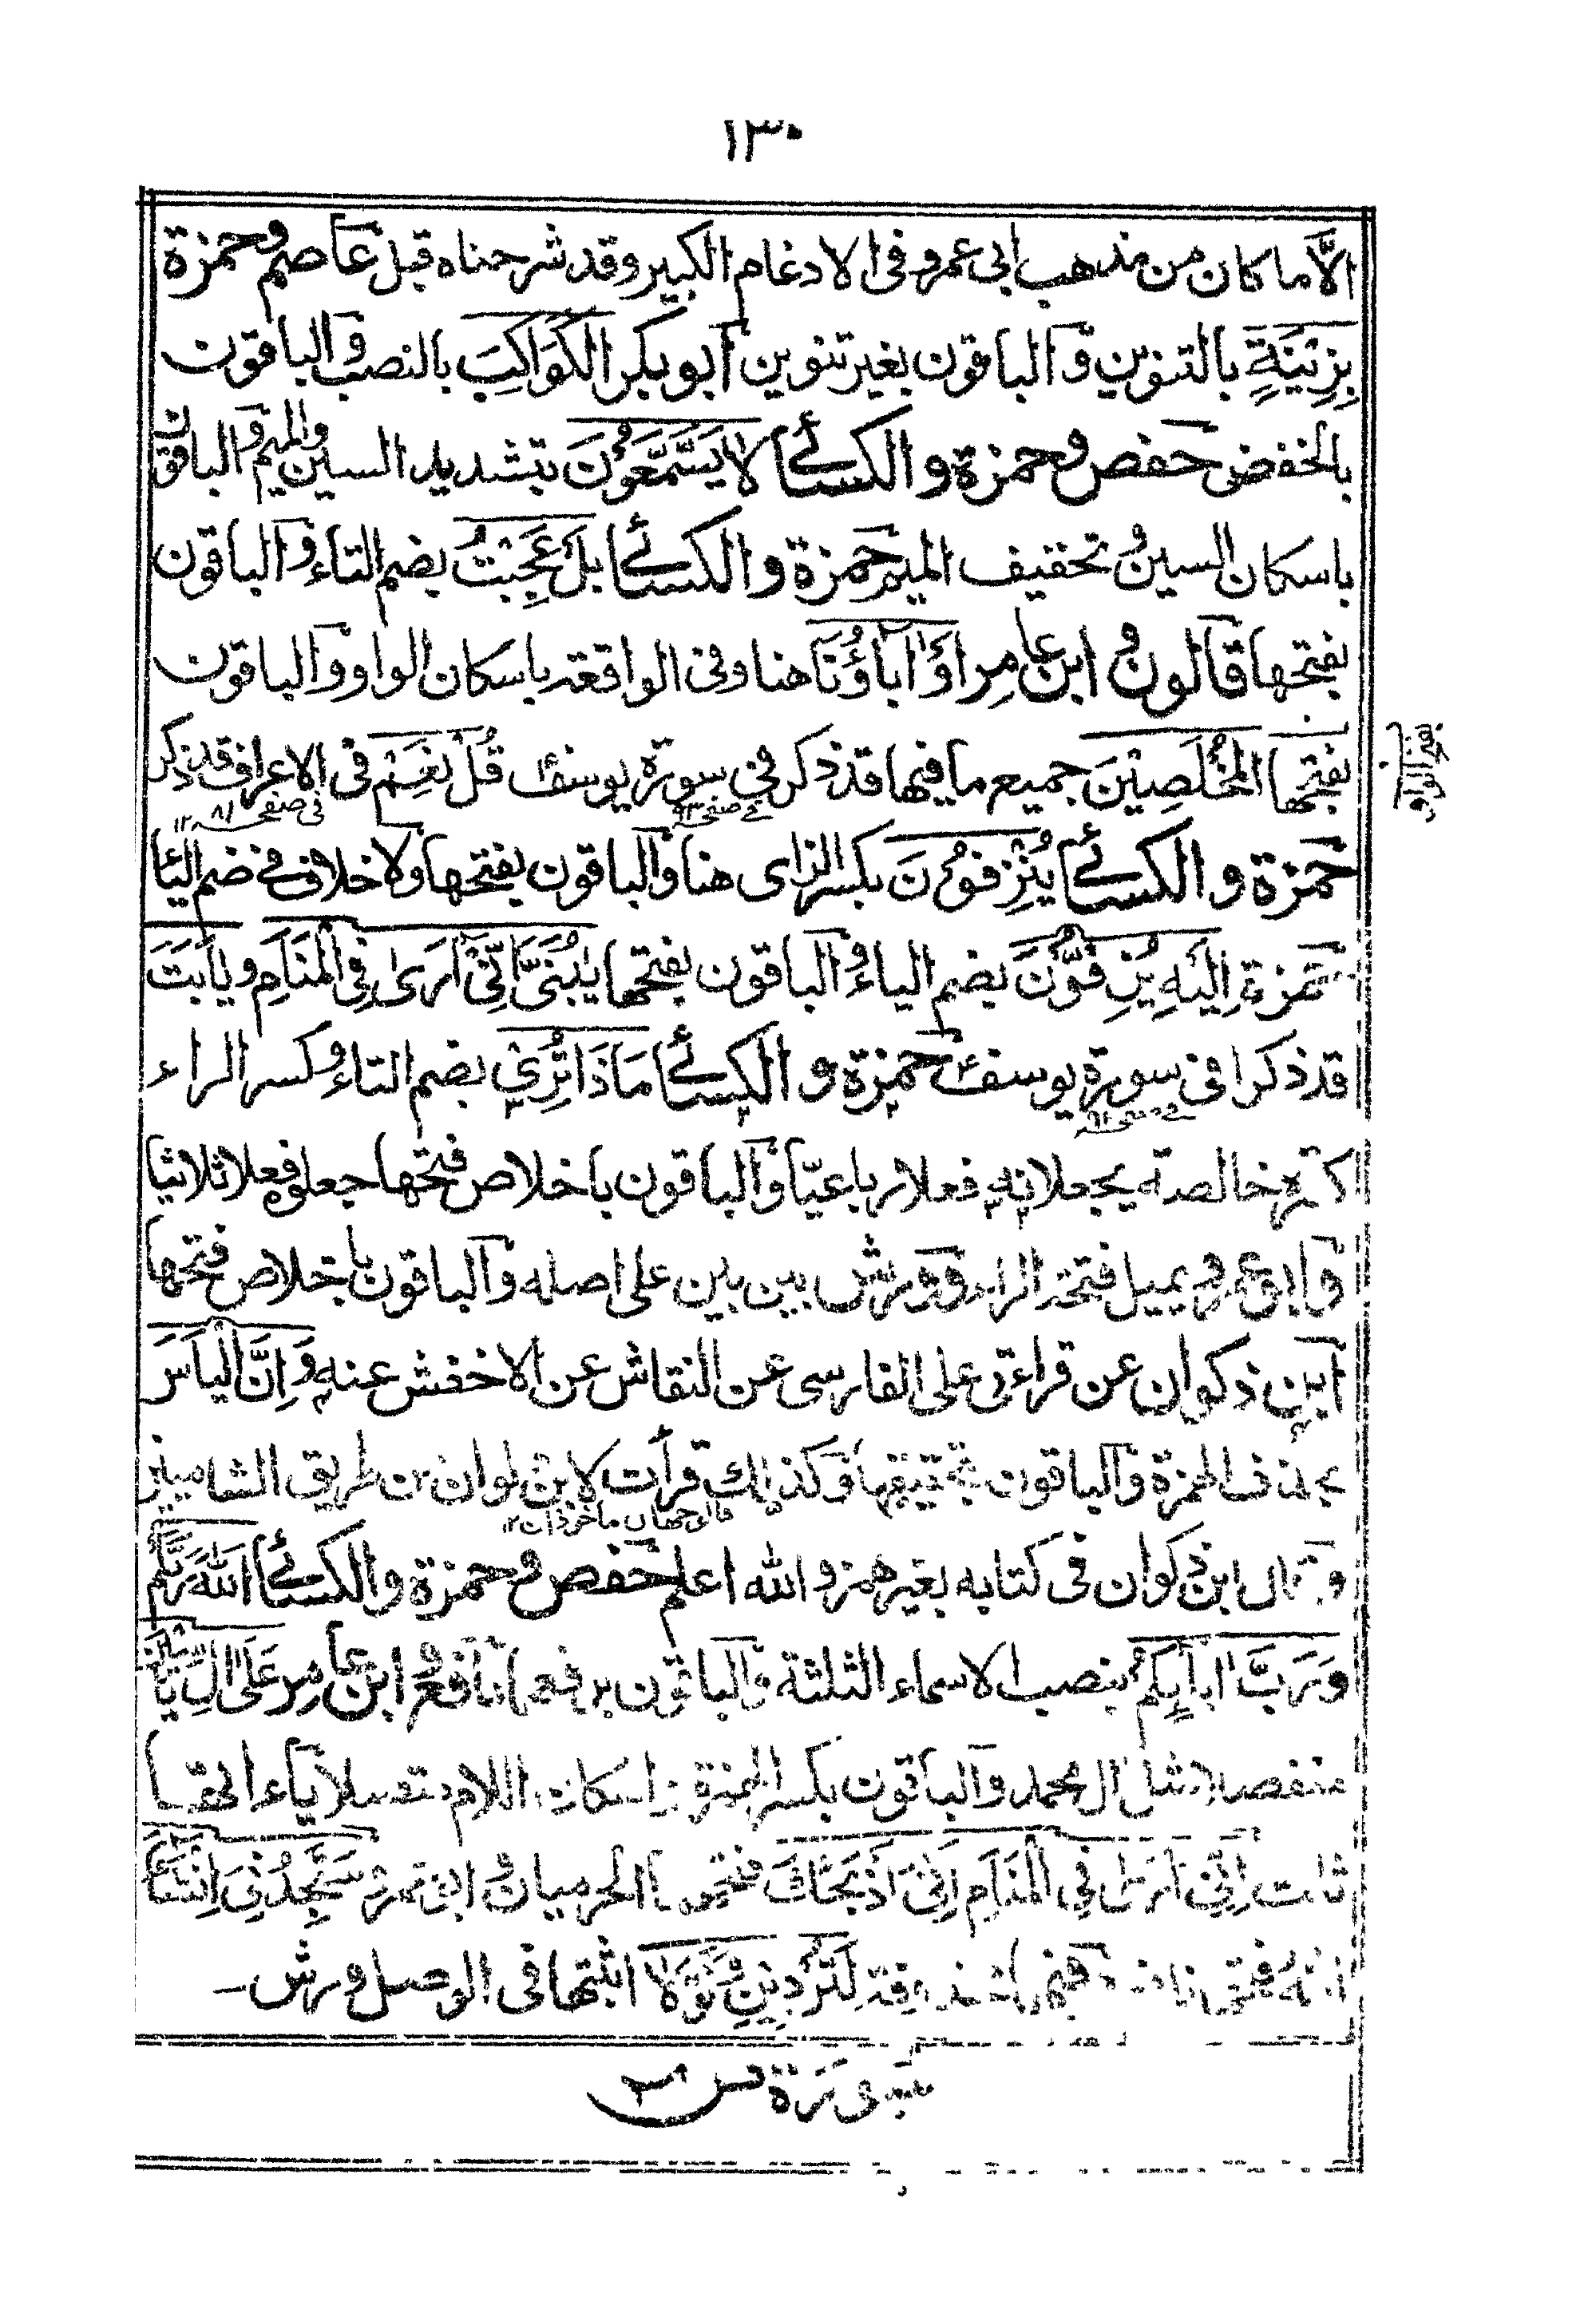 ١٣٠
الّا ما كان من مذهب ابى عمرو فى الادغام الكبير وقد شرحناه قبل عاصم وحمزة
بِزِيْنَةٍ بالتنوين والباقون بغير تنوين ابو بكر الْكَوَاكِبَ بالنصب والباقون
بالخفض حفص وحمزة والكسائے لا يَسَّمَّعُوْنَ بتشديد السين والميم والباقون
باسكان السين وتخفيف الميم حمزة والكسائے بَلْ عَجِبْتُ بضم التاء والباقون
بفتحها قالون وابن عامر اَوْ اٰبَاؤُنَا هنا وفى الواقعة باسكان الواو والباقون
بفتحها الْمُخْلَصِيْنَ جميع ما فيها قد ذكر فى سورة يوسف قُلْ نَعِمْ فى الاعراف قد ذكر
فى صفحه ٨١ ١٢
حمزة والكسائے يُنْزِفُوْنَ بكسر الزاى هنا والباقون بفتحها ولا خلاف فے ضم اليا
حمزة اِلَيْهِ يُزِفُّوْنَ بضم الياء والباقون بفتحها يٰبُنَىَّ اِنِّىْ اَرٰى فِى الْمَنَامِ ويٰاَبَتَ
قد ذكرا فى سورة يوسف حمزة والكسائے مَاذَا تُرِىْ بضم التاء وكسر الراء
كسرة خالصة يجعلانه فعلا رباعيّا والباقون باخلاص فتحها جعلوه فعلا ثلاثيا
وابو عمرو يميل فتحة الراء وورش بين بين على اصله والباقون باخلاص فتحها
ابن ذكوان عن قراءتى على الفارسى عن النقاش عن الاخفش عنه وَاِنَّ الْيَاسَ
بحذف الهمزة والباقون بتحقيقها وكذلك قرأت لابن ذكوان من طريق الشاميين
فالوجهان ماخوذان ١٢
وقال ابن ذكوان فى كتابه بغير همز والله اعلم حفص وحمزة والكسائے اَللّٰهَ رَبَّكُمْ
وَرَبَّ اٰبَائِكُمُ بنصب الاسماء الثلثة والباقون برفعها نافع وابن عامر عَلٰى اٰلِ يَاسِيْنَ
منفصلا مثل اٰل محمد والباقون بكسر الهمزة واسكان اللام متصلا ياءاتها
ثلث اِنِّىْ اَرٰى فِى الْمَنَامِ اَنِّىْ اَذْبَحُكَ فتحهما الحرميان وابو عمرو سَتَجِدُنِىْ اِنْشَآءَ
اللّٰهُ فتحها نافع وفيها محذوفة لَتُرْدِيْنِ وَلَوْلَا اثبتها فى الوصل ورش۔
سورة ص